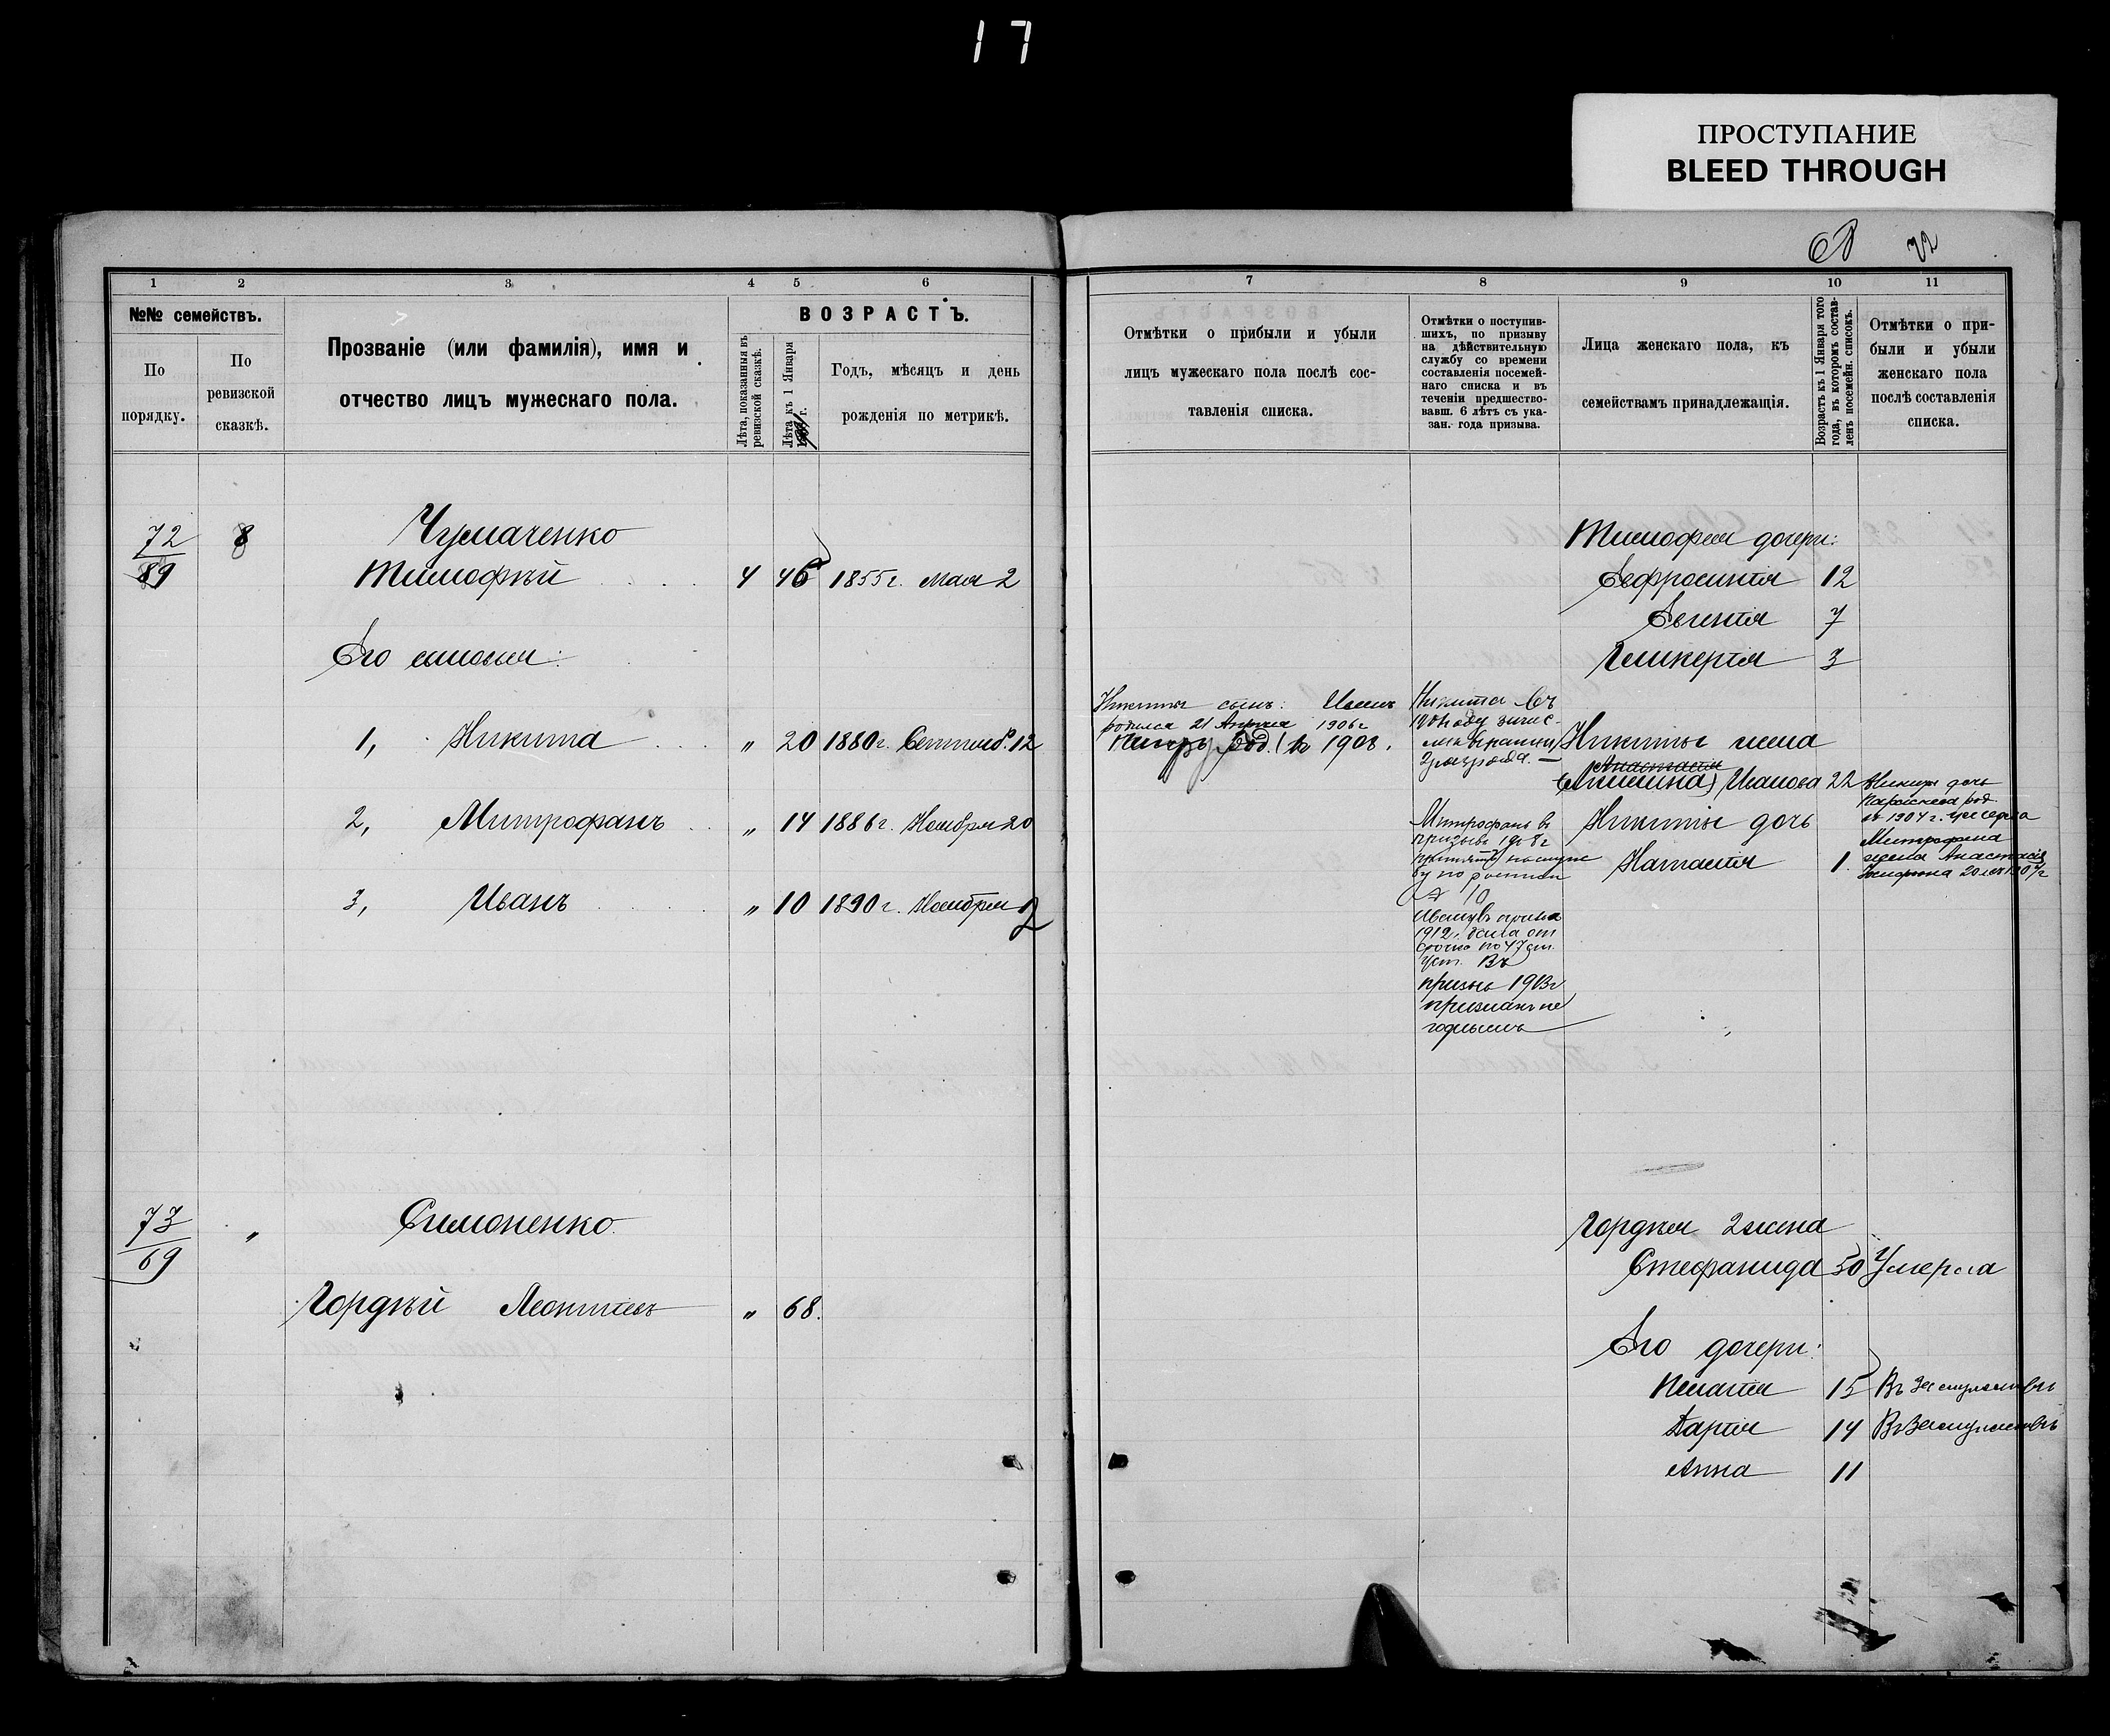 17
ПРОСТУПАНИЕ
BLEED THROUGH
72
1
2
3
4
5
6
№№ семействъ.
По порядку.
По ревизской сказкѣ.
Прозваніе (или фамилія), имя и
отчество лицъ мужескаго пола.
ВОЗРАСТЪ.
Лѣта, показанныя въ ревизской сказкѣ.
Лѣта къ 1 Января г.
Годъ, мѣсяцъ и день
рожденія по метрикѣ.
72
89
8
Чумаченко
Тимофѣй 4 46 1855 г. Мая 2
Его сыновья:
1, Никита „ 20 1880 г. Сентяб. 12
2, Митрофанъ „ 14 1886 г. Ноября 20
3, Иванъ „ 10 1890 г. Ноября
73
69
„
Симоненко
Гордѣй Леонтіевъ „ 68.
7
8
9
10
11
Отмѣтки о прибыли и убыли
лицъ мужескаго пола послѣ сос-
тавленія списка.
Отмѣтки о поступив-
шихъ, по призыву
на дѣйствительную
службу со времени
составленія посемей-
наго списка и въ
теченіи предшество-
вавш. 6 лѣтъ съ ука-
зан. года призыва.
Лица женскаго пола, къ
семействамъ принадлежащія.
Возрастъ къ 1 Января того
года, въ которомъ состав-
ленъ посемейн. списокъ.
Отмѣтки о при-
были и убыли
женскаго пола
послѣ составленія
списка.
Тимофея дочери:
Евфросинія 12
Евгенія 7
Гликерія 3
Никиты сынъ:
родился 21 Апрѣля 1906 г
Петръ род. въ 1908.
Никита въ
Никиты жена
Анастасія
Иванова 22
Никиты дочь
род.
въ 1904 г.
Никиты дочь
Наталія 1
Митрофана
жена Анастасія
20 лѣт 1907 г
Митрофанъ въ
призывъ 1908 г
принятъ на служ
бу по
№ 10
1912 г. дана от
срочка по 47 ст.
Уст. Въ
призывъ 1913 г
признанъ не
годнымъ
Гордѣя 2 жена
Стефанида 50 Умерла
Его дочери:
Пелагія 15 Въ замужествѣ
Дарія 14 Въ замужествѣ
Анна 11